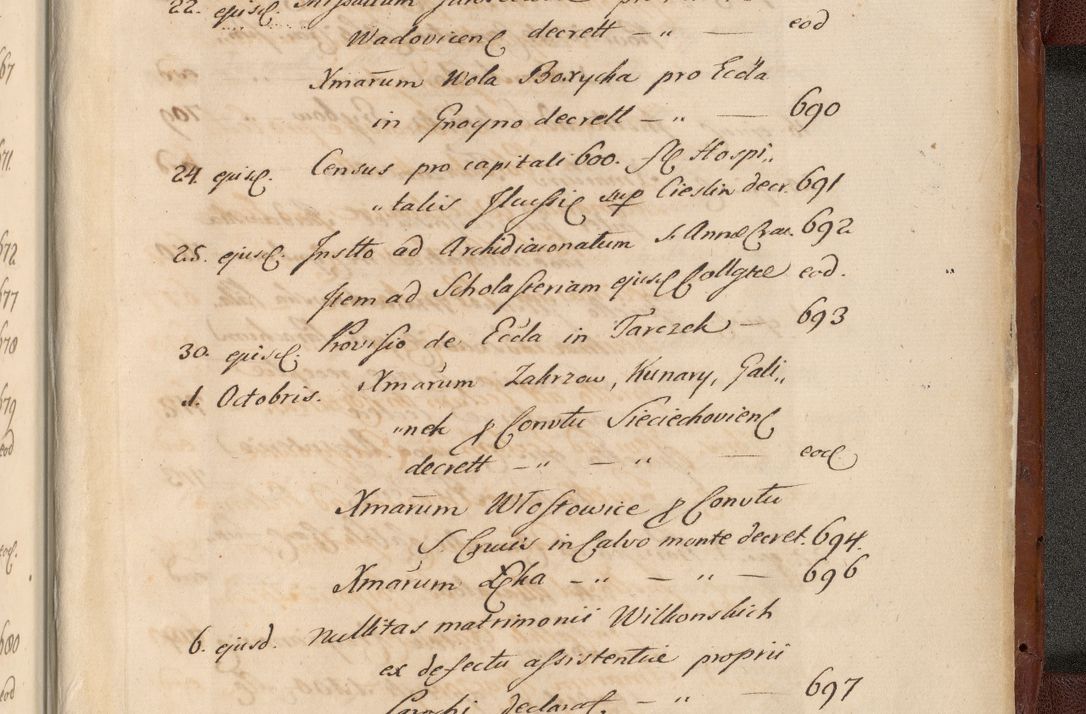 22. ejusd.
Wadovicens decrett — „ — eod
Xmarum Wola Boxycka pro Eccla
in Gnoyno decrett — „ — 690
24. ejusd. Census pro capitali 600. fl Hospi„
„talis Ilcussi sup Cieslin decr. 691
25. ejusd. Instto ad Archidiaconatum S. Annæ Crac. 692
Item ad Scholasteriam ejusd Collgtæ eod.
30. ejusd. Provisio de Eccla in Tarczek — 693
1. Octobris. Xmarum Zakrzow, Kunary, Gali„
„nek p Convtu Sieciechoviens
decrett — „ — „ — eod
Xmarum Włostowice p Convtu
S Crucis in Calvo monte decret. 694.
Xmarum Łęka — „ — „ — 696
6. ejusd. Nullitas matrimonii Wilkonskich
ex defectu assistentiæ proprii
Parochi declarat. — „ — 697
67
71.
672
677
678
679
eod
eod.
680
eod